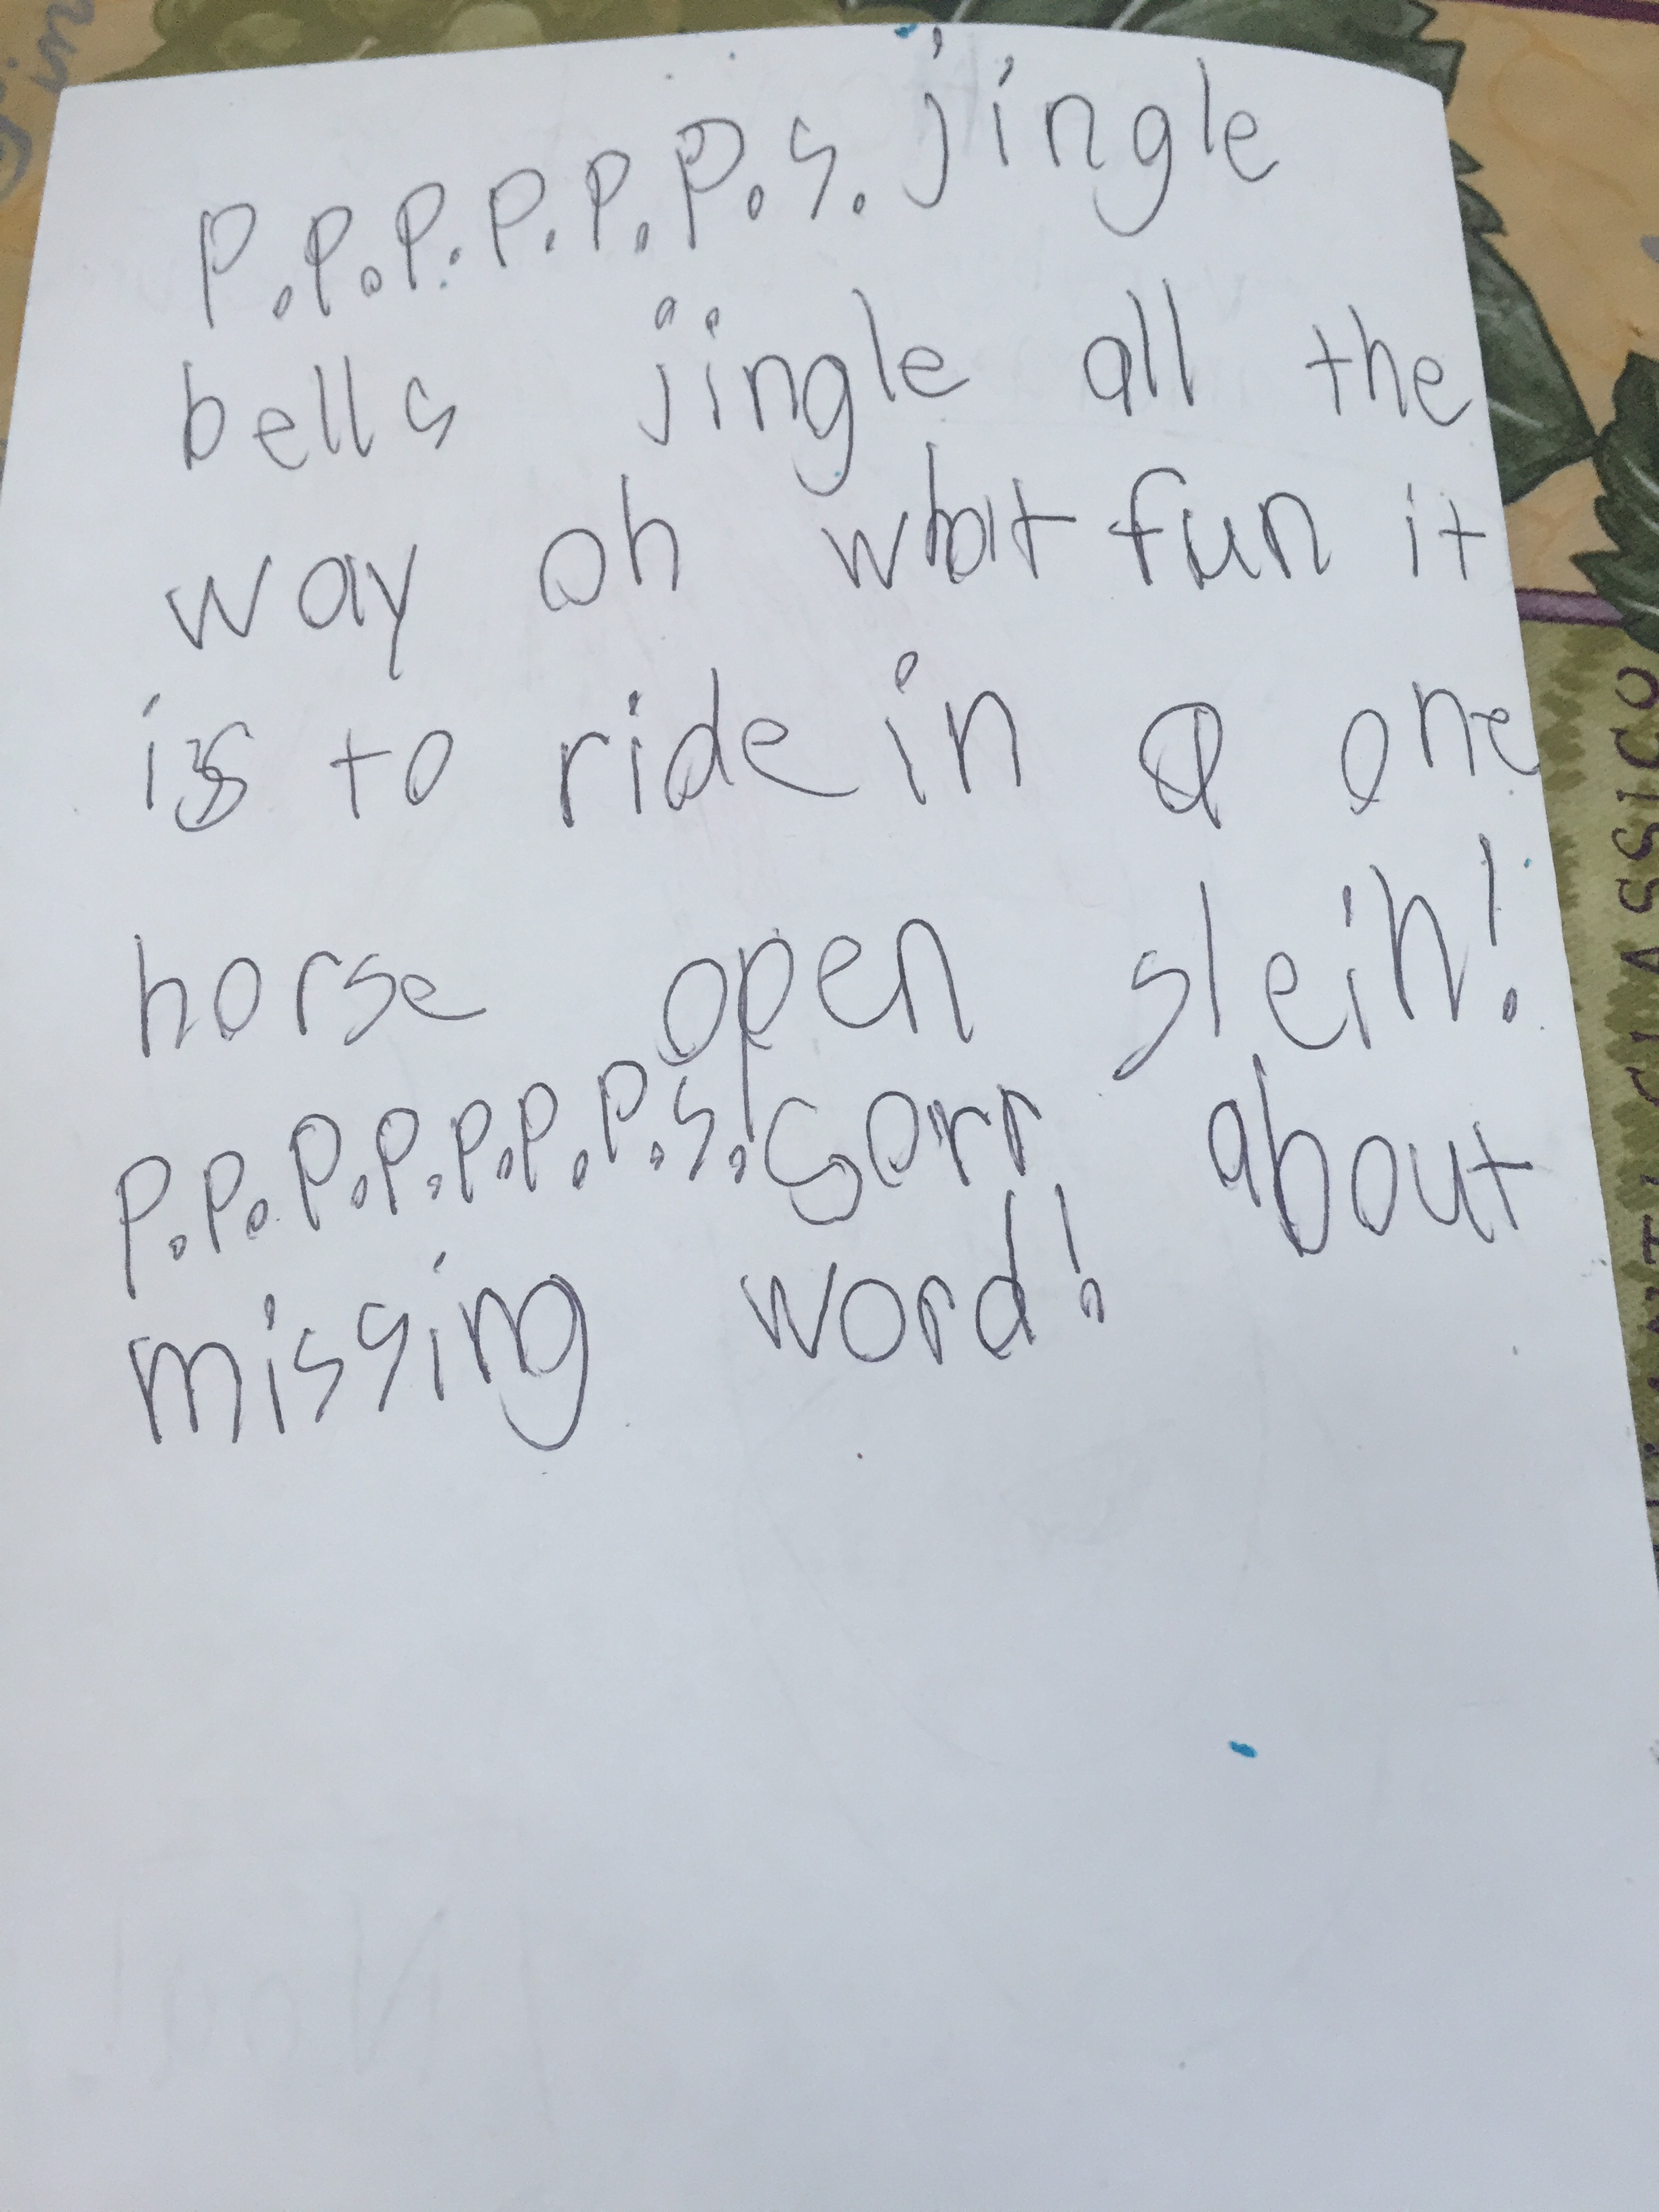 P.P.P.P.P.P.S. jingle
bells jingle all the
way oh what fun it
is to ride in a one
horse open sleih!
P.P.P.P.P.P.P.S. sorr about
missing word!
CLASSICO